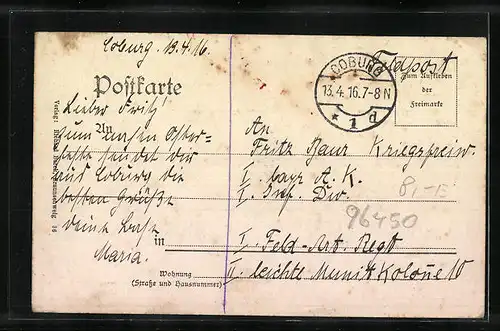 Coburg. 13.4.16.
Feldpost
Postkarte
COBURG
13.4.16.7-8N
* 1 d
Zum Aufkleben
der
Freimarke
Lieber Fritz!
Zum
Oster=
feste sendet dir
aus Coburg die
besten Grüße
deine
Maria.
An
Fritz Baur Kriegsfreiw.
I. bayr A. K.
I. Inf. Div.
8,-E
96450
I. Feld-Art. Regt
II. leichte Munit. Kolone 10
in
Wohnung
(Straße und Hausnummer)